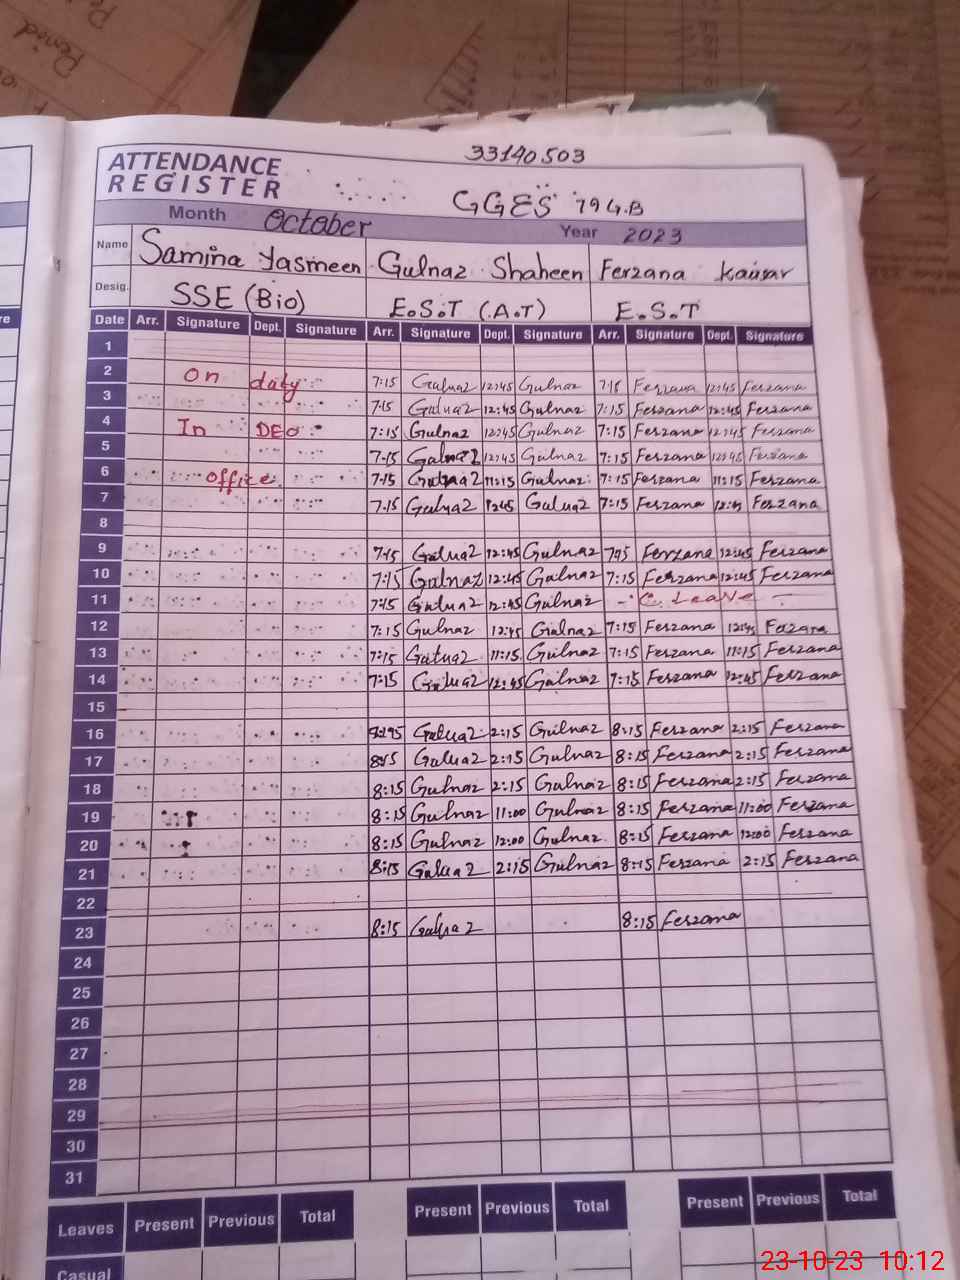 33140503
ATTENDANCE
REGISTER
GGES 79 G.B
Month October Year 2023
Name Samina Yasmeen Gulnaz Shaheen Ferzana Kausar
Desig. SSE (Bio) E.S.T (A.T) E.S.T
Date Arr. Signature Dept. Signature Arr. Signature Dept. Signature Arr. Signature Dept. Signature
1
2 On duty 7:15 Gulnaz 12:45 Gulnaz 7:15 Ferzana 12:45 Ferzana
3 7:15 Gulnaz 12:45 Gulnaz 7:15 Ferzana 12:45 Ferzana
4 In DEO 7:15 Gulnaz 12:45 Gulnaz 7:15 Ferzana 12:45 Ferzana
5 7:15 Gulnaz 12:45 Gulnaz 7:15 Ferzana 12:45 Ferzana
6 office 7:15 Gulnaz 11:15 Gulnaz 7:15 Ferzana 11:15 Ferzana
7 7:15 Gulnaz 12:45 Gulnaz 7:15 Ferzana 12:45 Ferzana
8
9 7:15 Gulnaz 12:45 Gulnaz 7:15 Ferzana 12:45 Ferzana
10 7:15 Gulnaz 12:45 Gulnaz 7:15 Ferzana 12:45 Ferzana
11 7:15 Gulnaz 12:45 Gulnaz - C. Leave -
12 7:15 Gulnaz 12:45 Gulnaz 7:15 Ferzana 12:45 Ferzana
13 7:15 Gulnaz 11:15 Gulnaz 7:15 Ferzana 11:15 Ferzana
14 7:15 Gulnaz 12:45 Gulnaz 7:15 Ferzana 12:45 Ferzana
15
16 Gulnaz 2:15 Gulnaz 8:15 Ferzana 2:15 Ferzana
17 8:15 Gulnaz 2:15 Gulnaz 8:15 Ferzana 2:15 Ferzana
18 8:15 Gulnaz 2:15 Gulnaz 8:15 Ferzana 2:15 Ferzana
19 8:15 Gulnaz 11:00 Gulnaz 8:15 Ferzana 11:00 Ferzana
20 8:15 Gulnaz 12:00 Gulnaz 8:15 Ferzana 12:00 Ferzana
21 8:15 Gulnaz 2:15 Gulnaz 8:15 Ferzana 2:15 Ferzana
22
23 8:15 Gulnaz 8:15 Ferzana
24
25
26
27
28
29
30
31
Leaves Present Previous Total Present Previous Total Present Previous Total
Casual
23-10-23 10:12